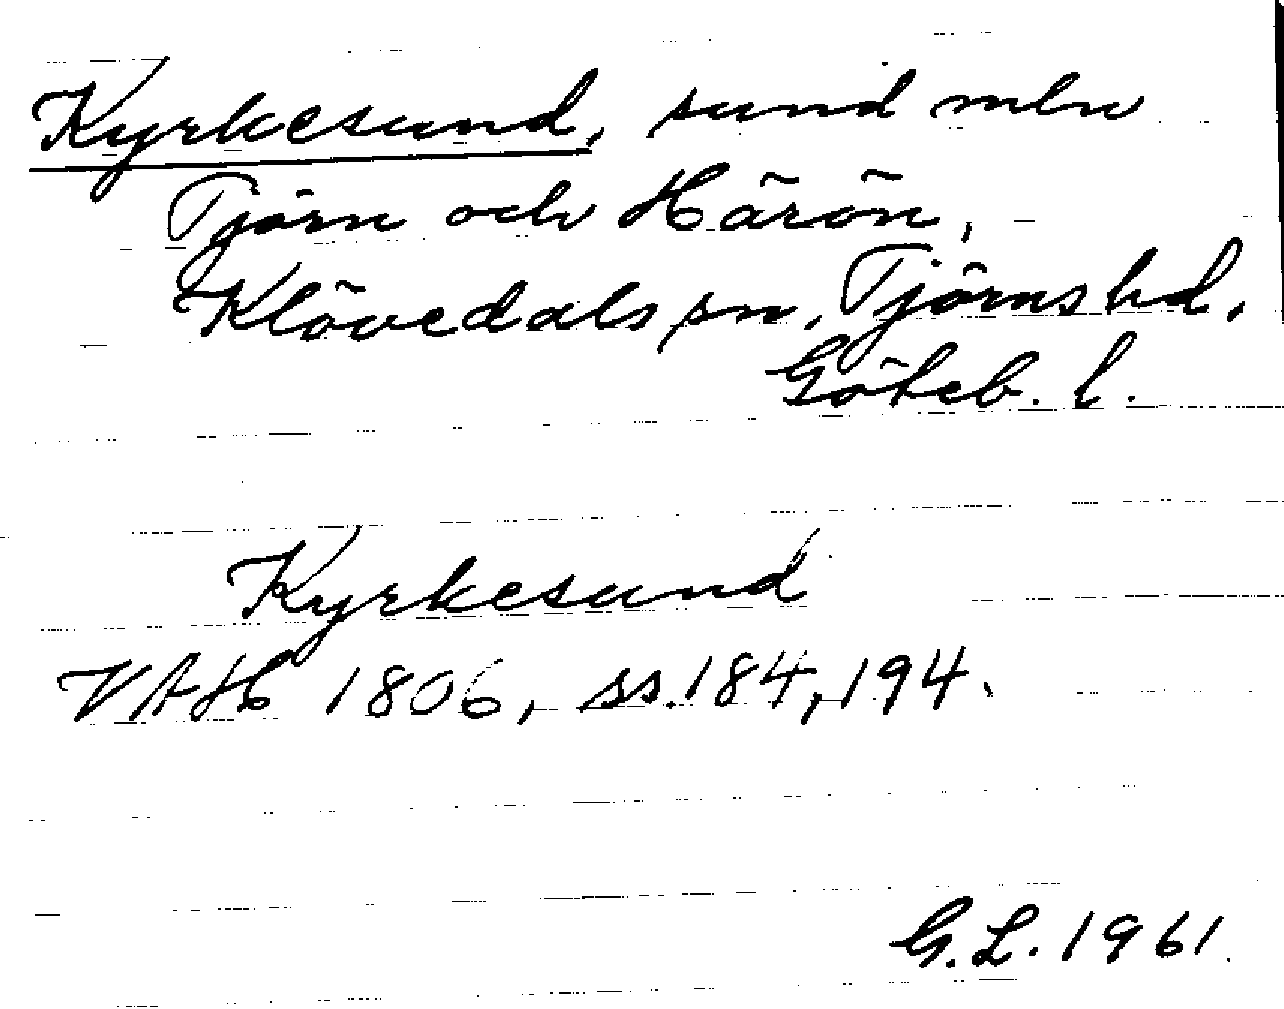 Kyrkesund, sund mln
Tjörn och Härön,
Klövedals sn, Tjörns hd,
Göteb. l.
Kyrkesund
VAH 1806, ss. 184, 194.
G. L. 1961.